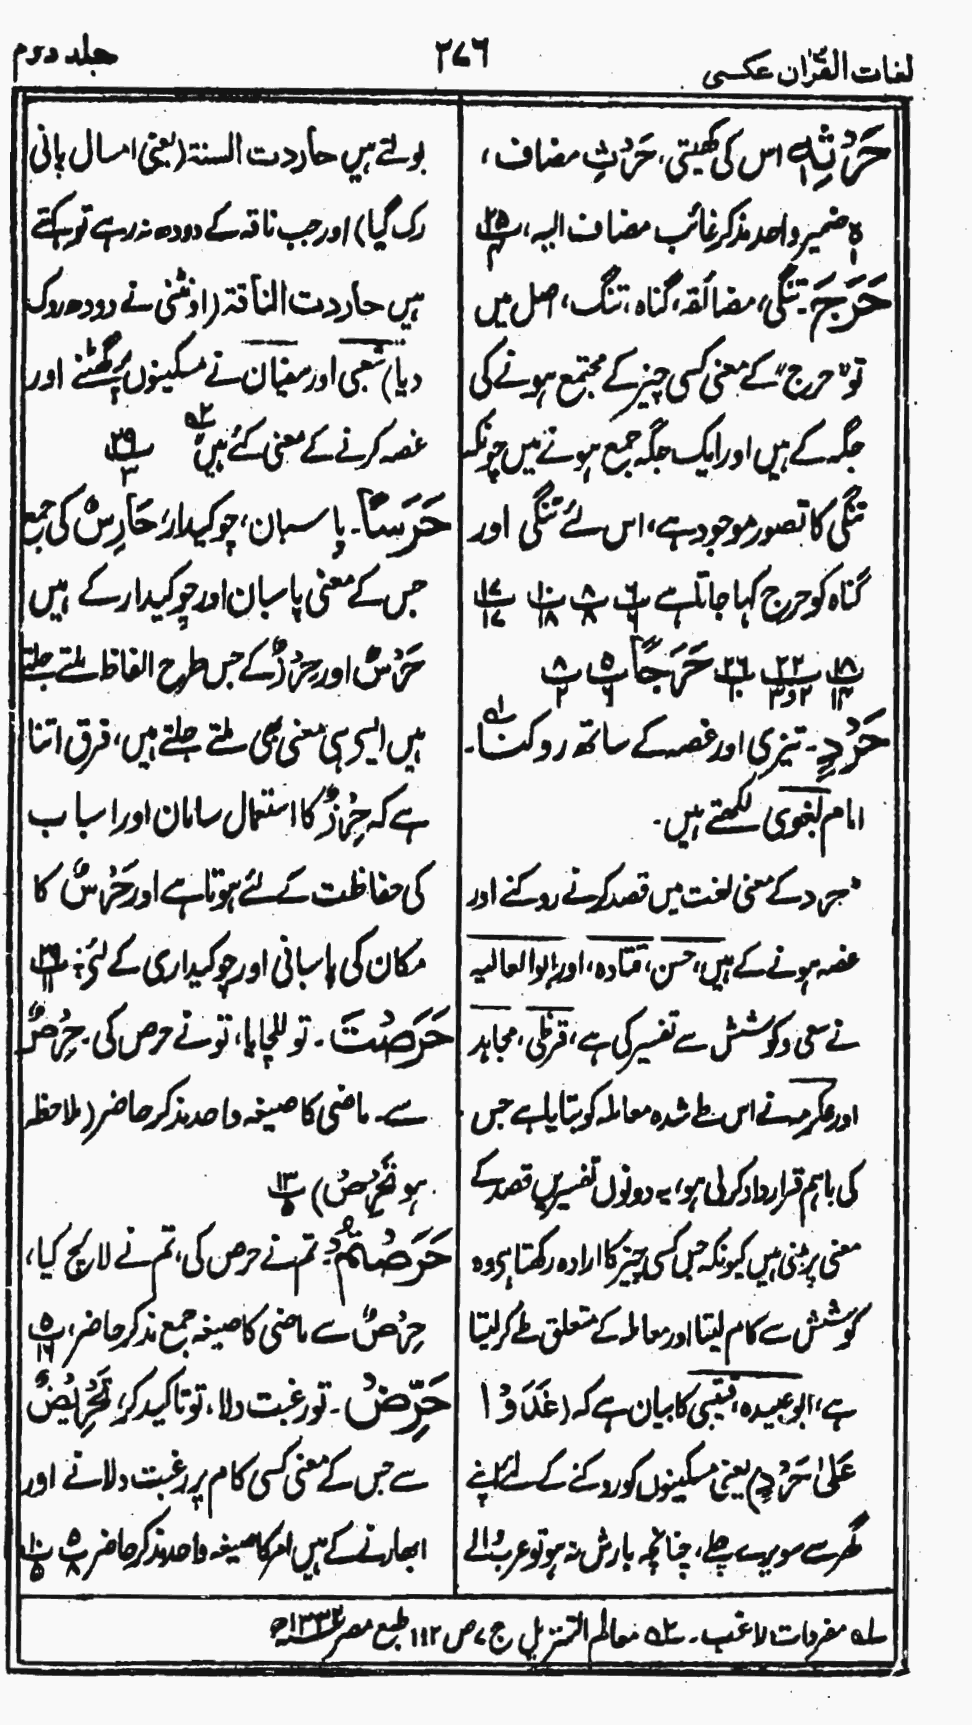 لغات القرآن عکسی
۲۷۶
جلد دوم
حَرْثِهٖ اس کی کھیتی، حَرْثِ مضاف،
ہٖ ضمیر واحد مذکر غائب مضاف الیہ، ۲۵/۴
حَرَجَ۔ تنگی، مضائقہ، گناہ، تنگ، اصل میں
تو "حرج" کے معنی کسی چیز کے مجتمع ہونے کی
جگہ کے ہیں اور ایک جگہ جمع ہونے میں چونکہ
تنگی کا تصور موجود ہے، اس لئے تنگی اور
گناہ کو حرج کہا جاتا ہے ۶/۶ ۸/۸ ۱۰/۱۸ ۱۷/۱۷
۱۸/۱۴ ۲۲/۲و۳ ۲۶/۱۰ حَرَجًا ۵/۶ ۸/۲
حَرْدٍ۔ تیزی اور غصہ کے ساتھ روکنا لہ۔
امام بغوی لکھتے ہیں۔
"حرد کے معنی لغت میں قصد کرنے روکنے اور
غصہ ہونے کے ہیں، حسن، قتادہ، اور ابو العالیہ
نے سعی و کوشش سے تفسیر کی ہے، قرظی، مجاہد
اور عکرمہ نے اس طے شدہ معاملہ کو بتایا ہے جس
کی باہم قرارداد کرلی ہو، یہ دونوں تفسیریں قصد کے
معنی پر مبنی ہیں کیونکہ جس کسی چیز کا ارادہ رکھتا ہی وہ
کوشش سے کام لیتا اور معاملہ کے متعلق طے کرلیتا
ہے، ابو عبیدہ، قتیبی کا بیان ہے کہ (غَدَوْا
عَلٰی حَرْدٍ) یعنی مسکینوں کو روکنے کے لئے اپنے
گھر سے سویرے چلے، چنانچہ بارش نہ ہو تو عرب والے
بولتے ہیں حاردت السنۃ (یعنی امسال پانی
رک گیا) اور جب ناقہ کے دودھ نہ رہے تو کہتے
ہیں حاردت الناقۃ (اونٹنی نے دودھ روک
دیا) شعبی اور سفیان نے مسکینوں پر گھٹنے اور
غصہ کرنے کے معنی کئے ہیں ۲ہ ۲۹/۳
حَرَسًا۔ پاسبان، چوکیدار، حَارِسٌ کی جمع
جس کے معنی پاسبان اور چوکیدار کے ہیں
حَرْسٌ اور حِرْزٌ کے جس طرح الفاظ ملتے جلتے
ہیں ایسے ہی معنی بھی ملتے جلتے ہیں، فرق اتنا
ہے کہ حِرْزٌ کا استعمال سامان اور اسباب
کی حفاظت کے لئے ہوتا ہے اور حَرْسٌ کا
مکان کی پاسبانی اور چوکیداری کے لئے: ۲۹/۱۱
حَرَصْتَ۔ تو للچایا، تو نے حرص کی۔ حِرْصٌ
سے۔ ماضی کا صیغہ واحد مذکر حاضر (ملاحظہ
ہو تَحْرِصْ) ۱۳/۵
حَرَصْتُمْ۔ تم نے حرص کی، تم نے لالچ کیا،
حِرْصٌ سے ماضی کا صیغہ جمع مذکر حاضر، ۵/۱۶
حَرِّضْ۔ تو رغبت دلا، تو تاکید کر، تَحْرِیْضٌ
سے جس کے معنی کسی کام پر رغبت دلانے اور
ابھارنے کے ہیں امر کا صیغہ واحد مذکر حاضر ۵/۸ ۱۰/۵
لہ مفردات راغب۔ ۲ہ معالم التنزیل ج ۷ ص ۱۱۲ طبع مصر ۱۳۳۲ھ